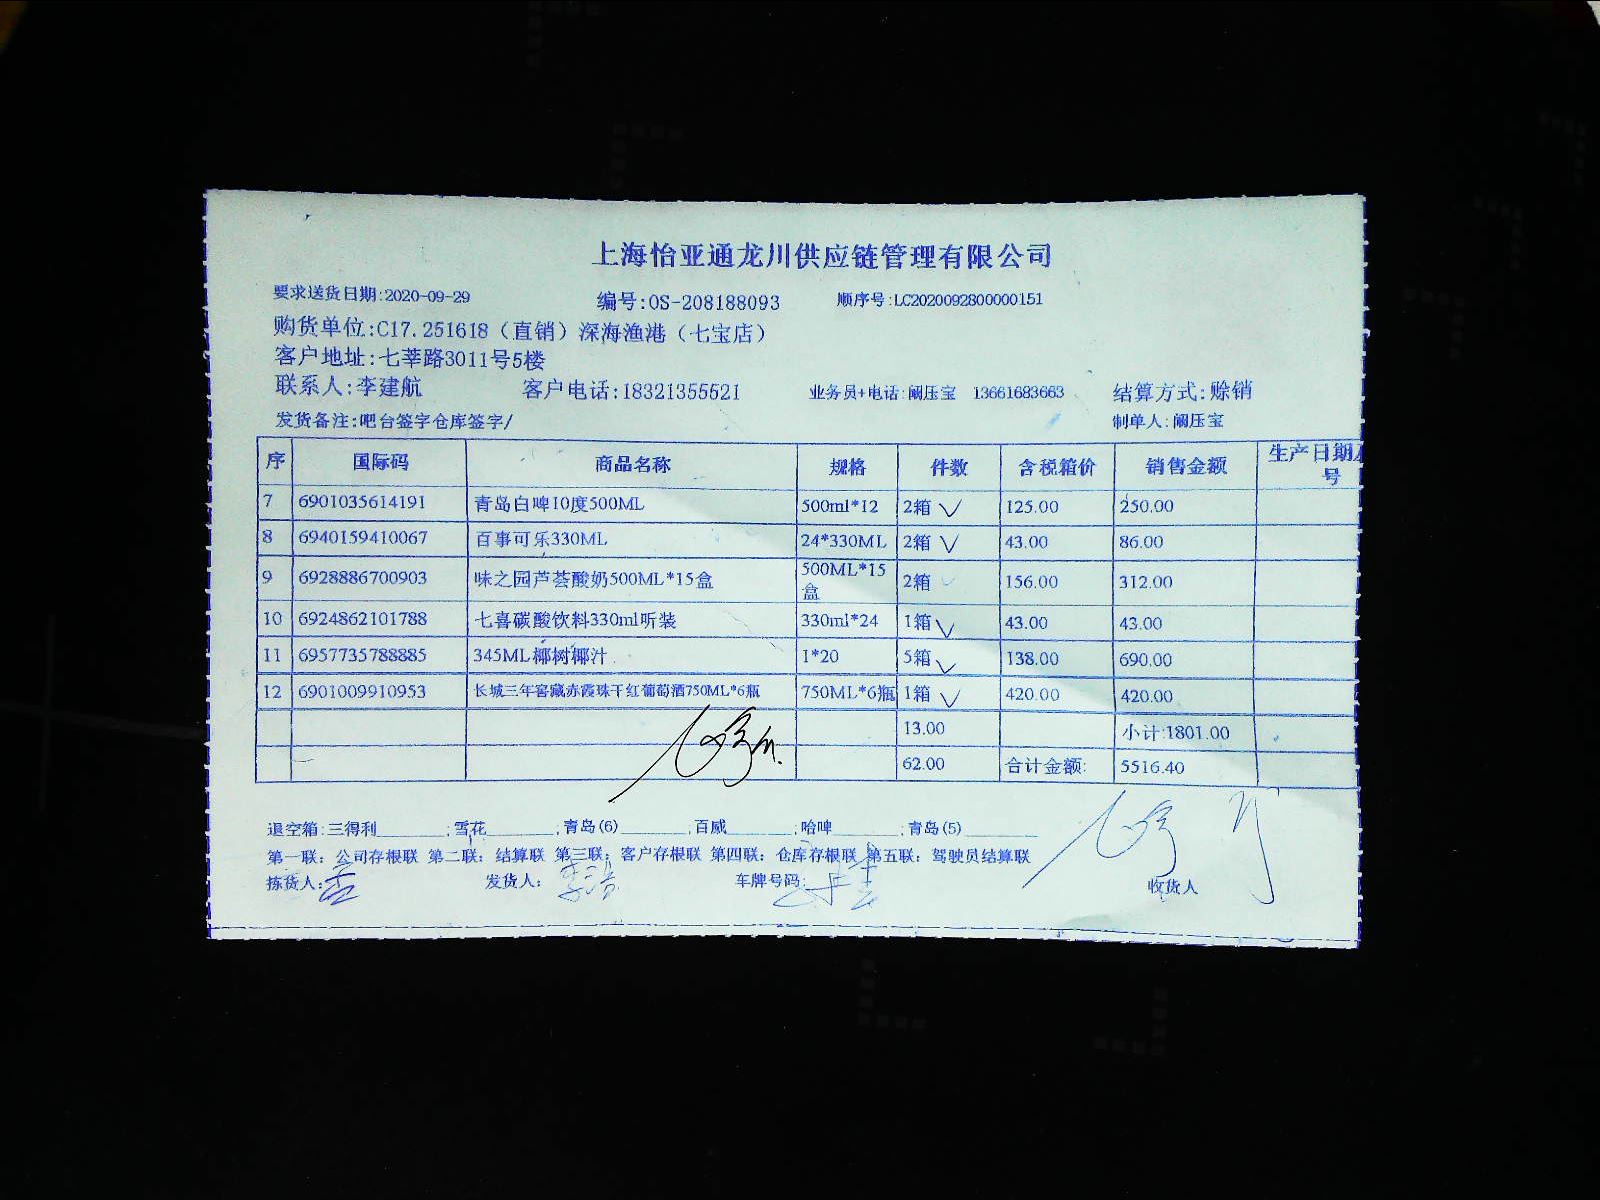 上海怡亚通龙川供应链管理有限公司
要求送货日期:2020-09-29 编号:OS-208188093 顺序号:LC2020092800000151
购货单位:C17.251618（直销）深海渔港（七宝店）
客户地址:七莘路3011号5楼
联系人:李建航 客户电话:18321355521 业务员+电话:阚压宝 13661683663 结算方式:赊销
发货备注:吧台签字仓库签字/ 制单人:阚压宝
序 国际码 商品名称 规格 件数 含税箱价 销售金额 生产日期 号
7 6901035614191 青岛白啤10度500ML 500ml*12 2箱 125.00 250.00
8 6940159410067 百事可乐330ML 24*330ML 2箱 43.00 86.00
9 6928886700903 味之园芦荟酸奶500ML*15盒 500ML*15盒 2箱 156.00 312.00
10 6924862101788 七喜碳酸饮料330ml听装 330ml*24 1箱 43.00 43.00
11 6957735788885 345ML椰树椰汁 1*20 5箱 138.00 690.00
12 6901009910953 长城三年窖藏赤霞珠干红葡萄酒750ML*6瓶 750ML*6瓶 1箱 420.00 420.00
13.00 小计:1801.00
62.00 合计金额: 5516.40
退空箱:三得利______;雪花______;青岛(6)______;百威______;哈啤______;青岛(5)______
第一联：公司存根联 第二联：结算联 第三联：客户存根联 第四联：仓库存根联 第五联：驾驶员结算联
拣货人: 发货人: 车牌号码: 收货人